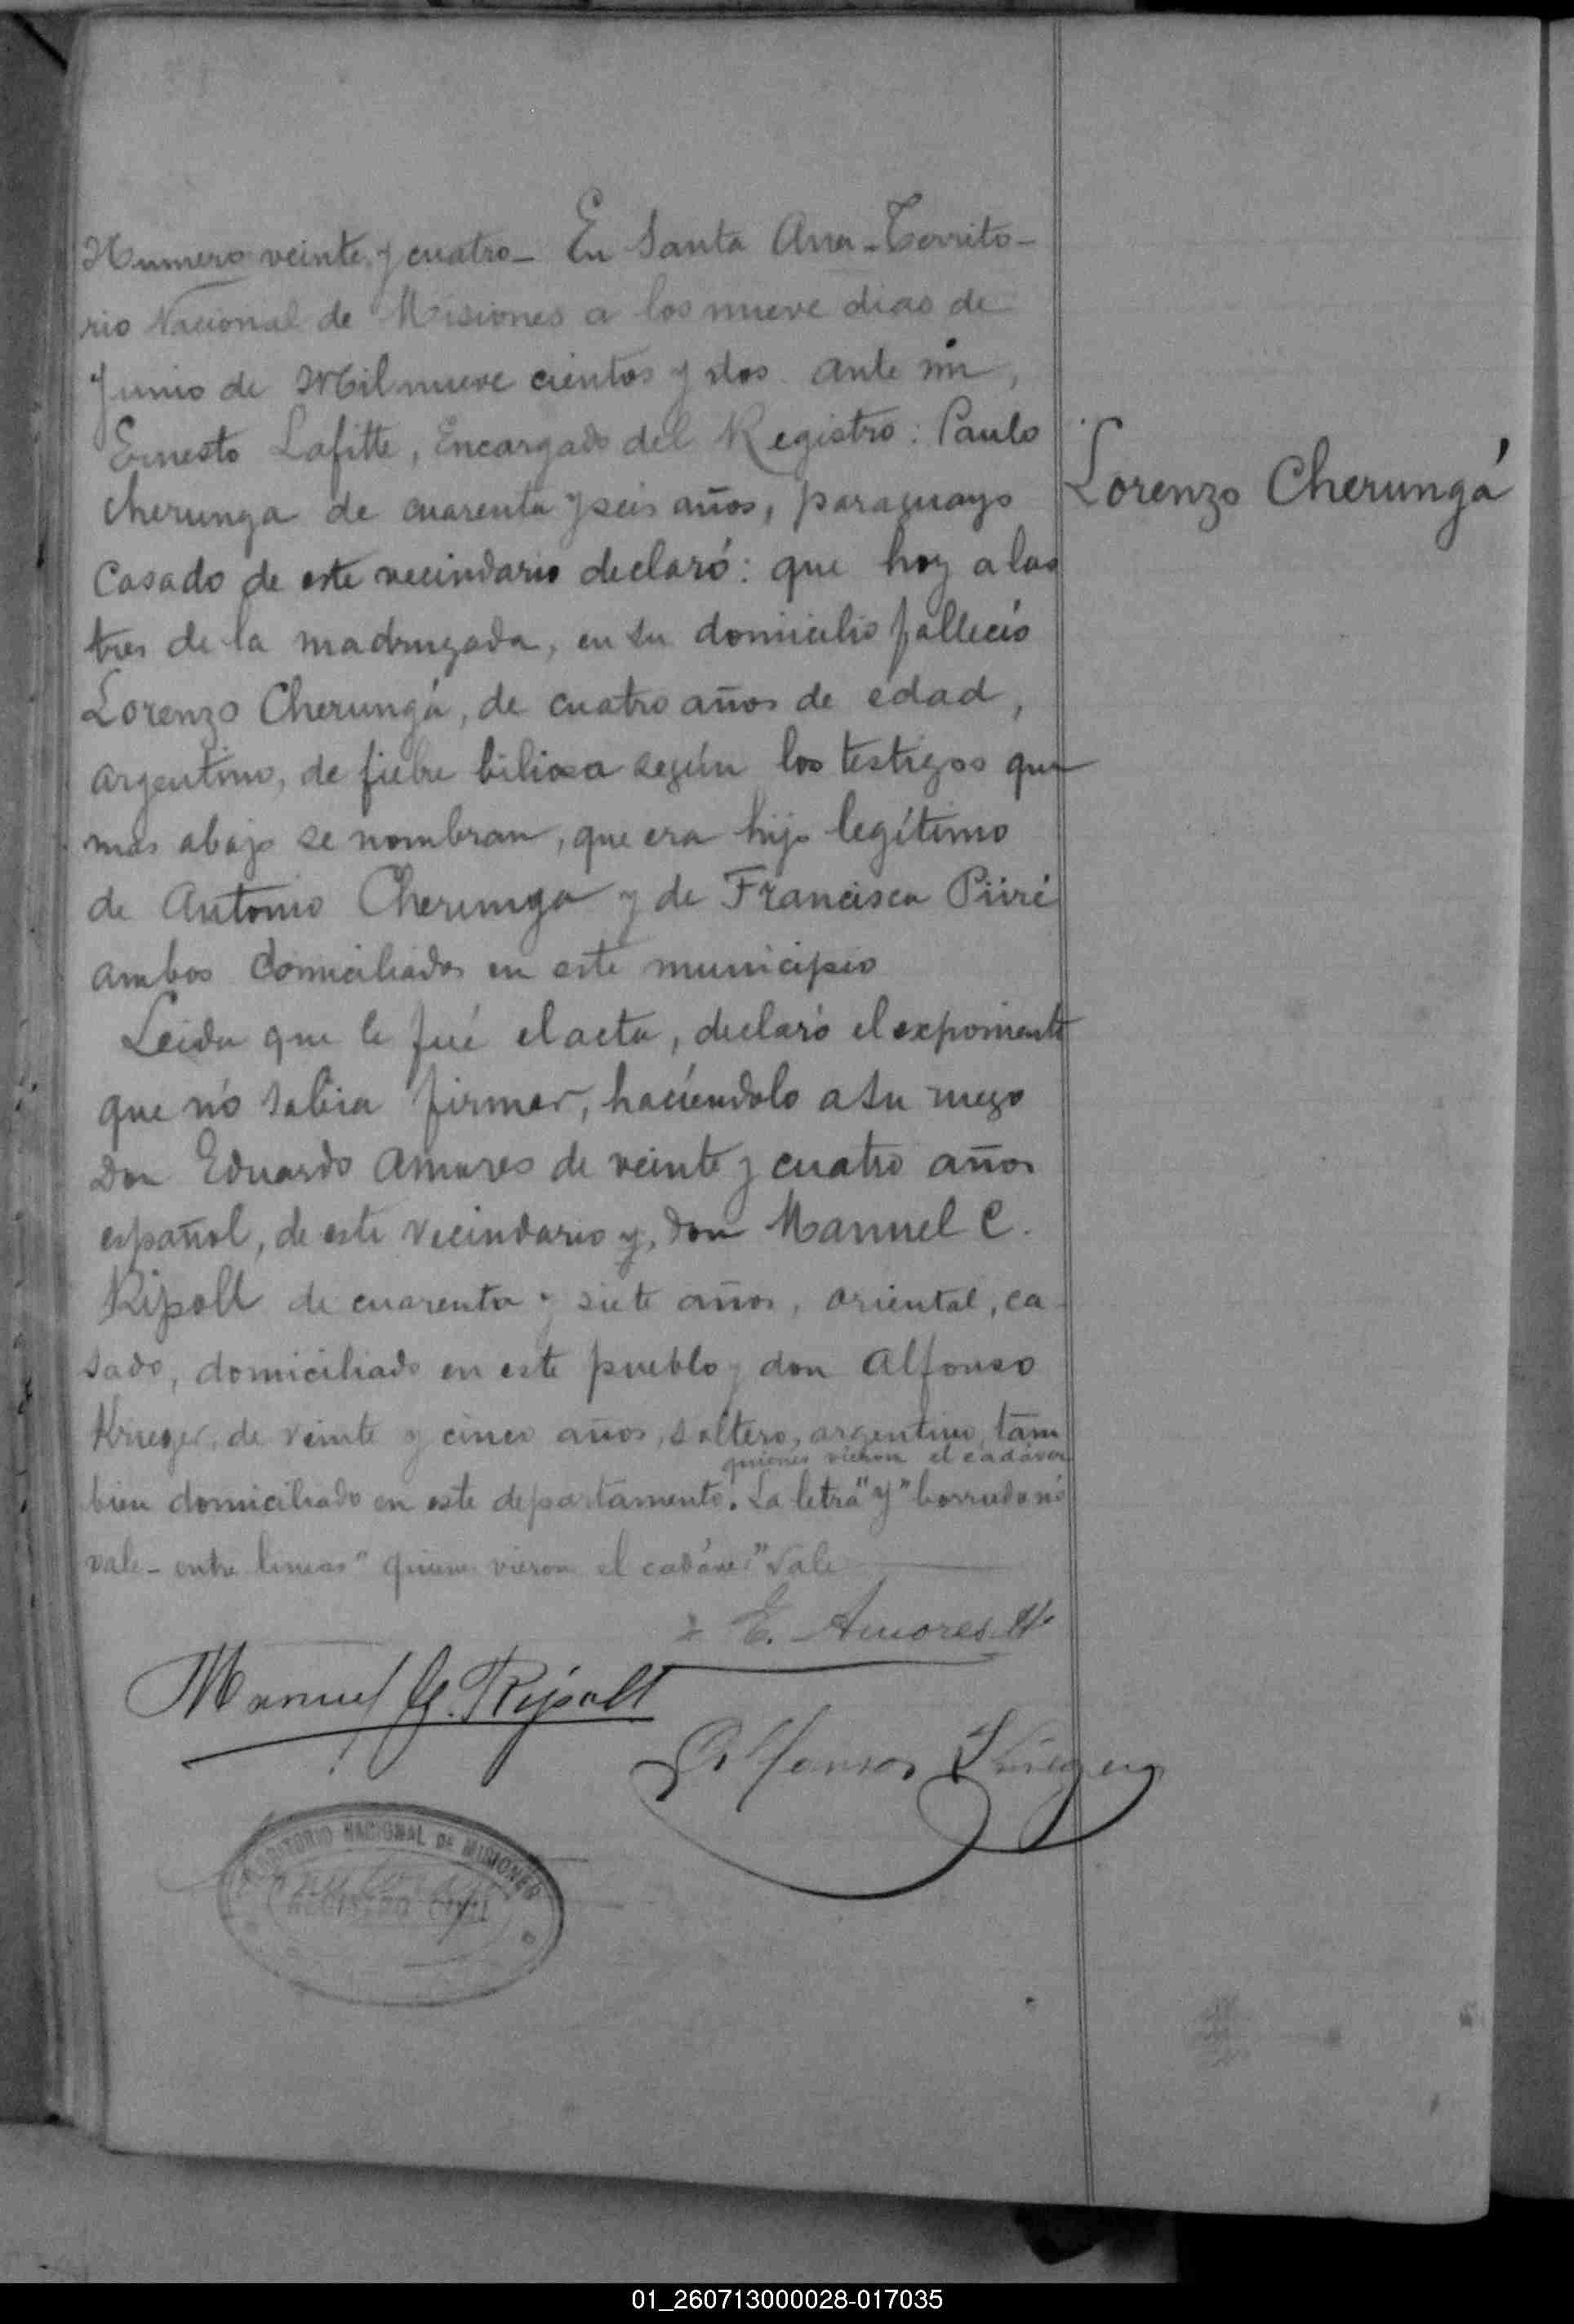 Numero veinte y cuatro_ En Santa Ana_Territo-
rio Nacional de Misiones a los nueve dias de
Junio de Mil nueve cientos y dos ante mi,
Ernesto Lafitte, Encargado del Registro: Paulo
Cherunga de cuarenta y seis años, paraguayo
Casado de este vecindario declaró: que hoy a las
tres de la madrugada, en su domicilio falleció
Lorenzo Cherungá, de cuatro años de edad,
argentino, de fiebre biliosa según los testigos que
mas abajo se nombran, que era hijo legítimo
de Antonio Cherunga y de Francisca Piiré
ambos domiciliados en este municipio
Leida que le fué el acta, declaró el exponiente
que nó sabia firmar, haciéndolo a su ruego
don Eduardo Amores de veinte y cuatro años
español, de este vecindario y, don Manuel C.
Ripoll de cuarenta y siete años, oriental, ca-
sado, domiciliado en este pueblo y don Alfonso
Krieger, de veinte y cinco años, soltero, argentino, tam
quienes vieron el cadáver
bien domiciliado en este departamento. La letra "y" borrada nó
vale_ entre lineas "quienes vieron el cadáver" Vale
Lorenzo Cherungá
E. Amores
Manuel C. Ripoll
Alfonso Krieger
TERRITORIO NACIONAL DE MISIONES
REGISTRO CIVIL
01_260713000028-017035